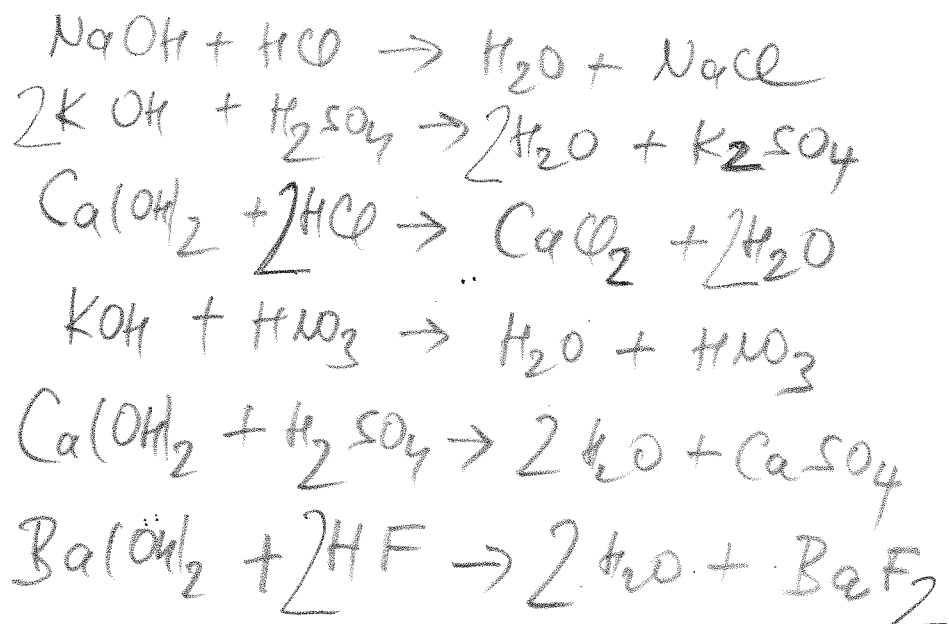 NaOH + HCl → H₂O + NaCl
2KOH + H₂SO₄ → 2H₂O + K₂SO₄
Ca(OH)₂ + 2HCl → CaCl₂ + 2H₂O
KOH + HNO₃ → H₂O + HNO₃
Ca(OH)₂ + H₂SO₄ → 2H₂O + CaSO₄
Ba(OH)₂ + 2HF → 2H₂O + BaF₂